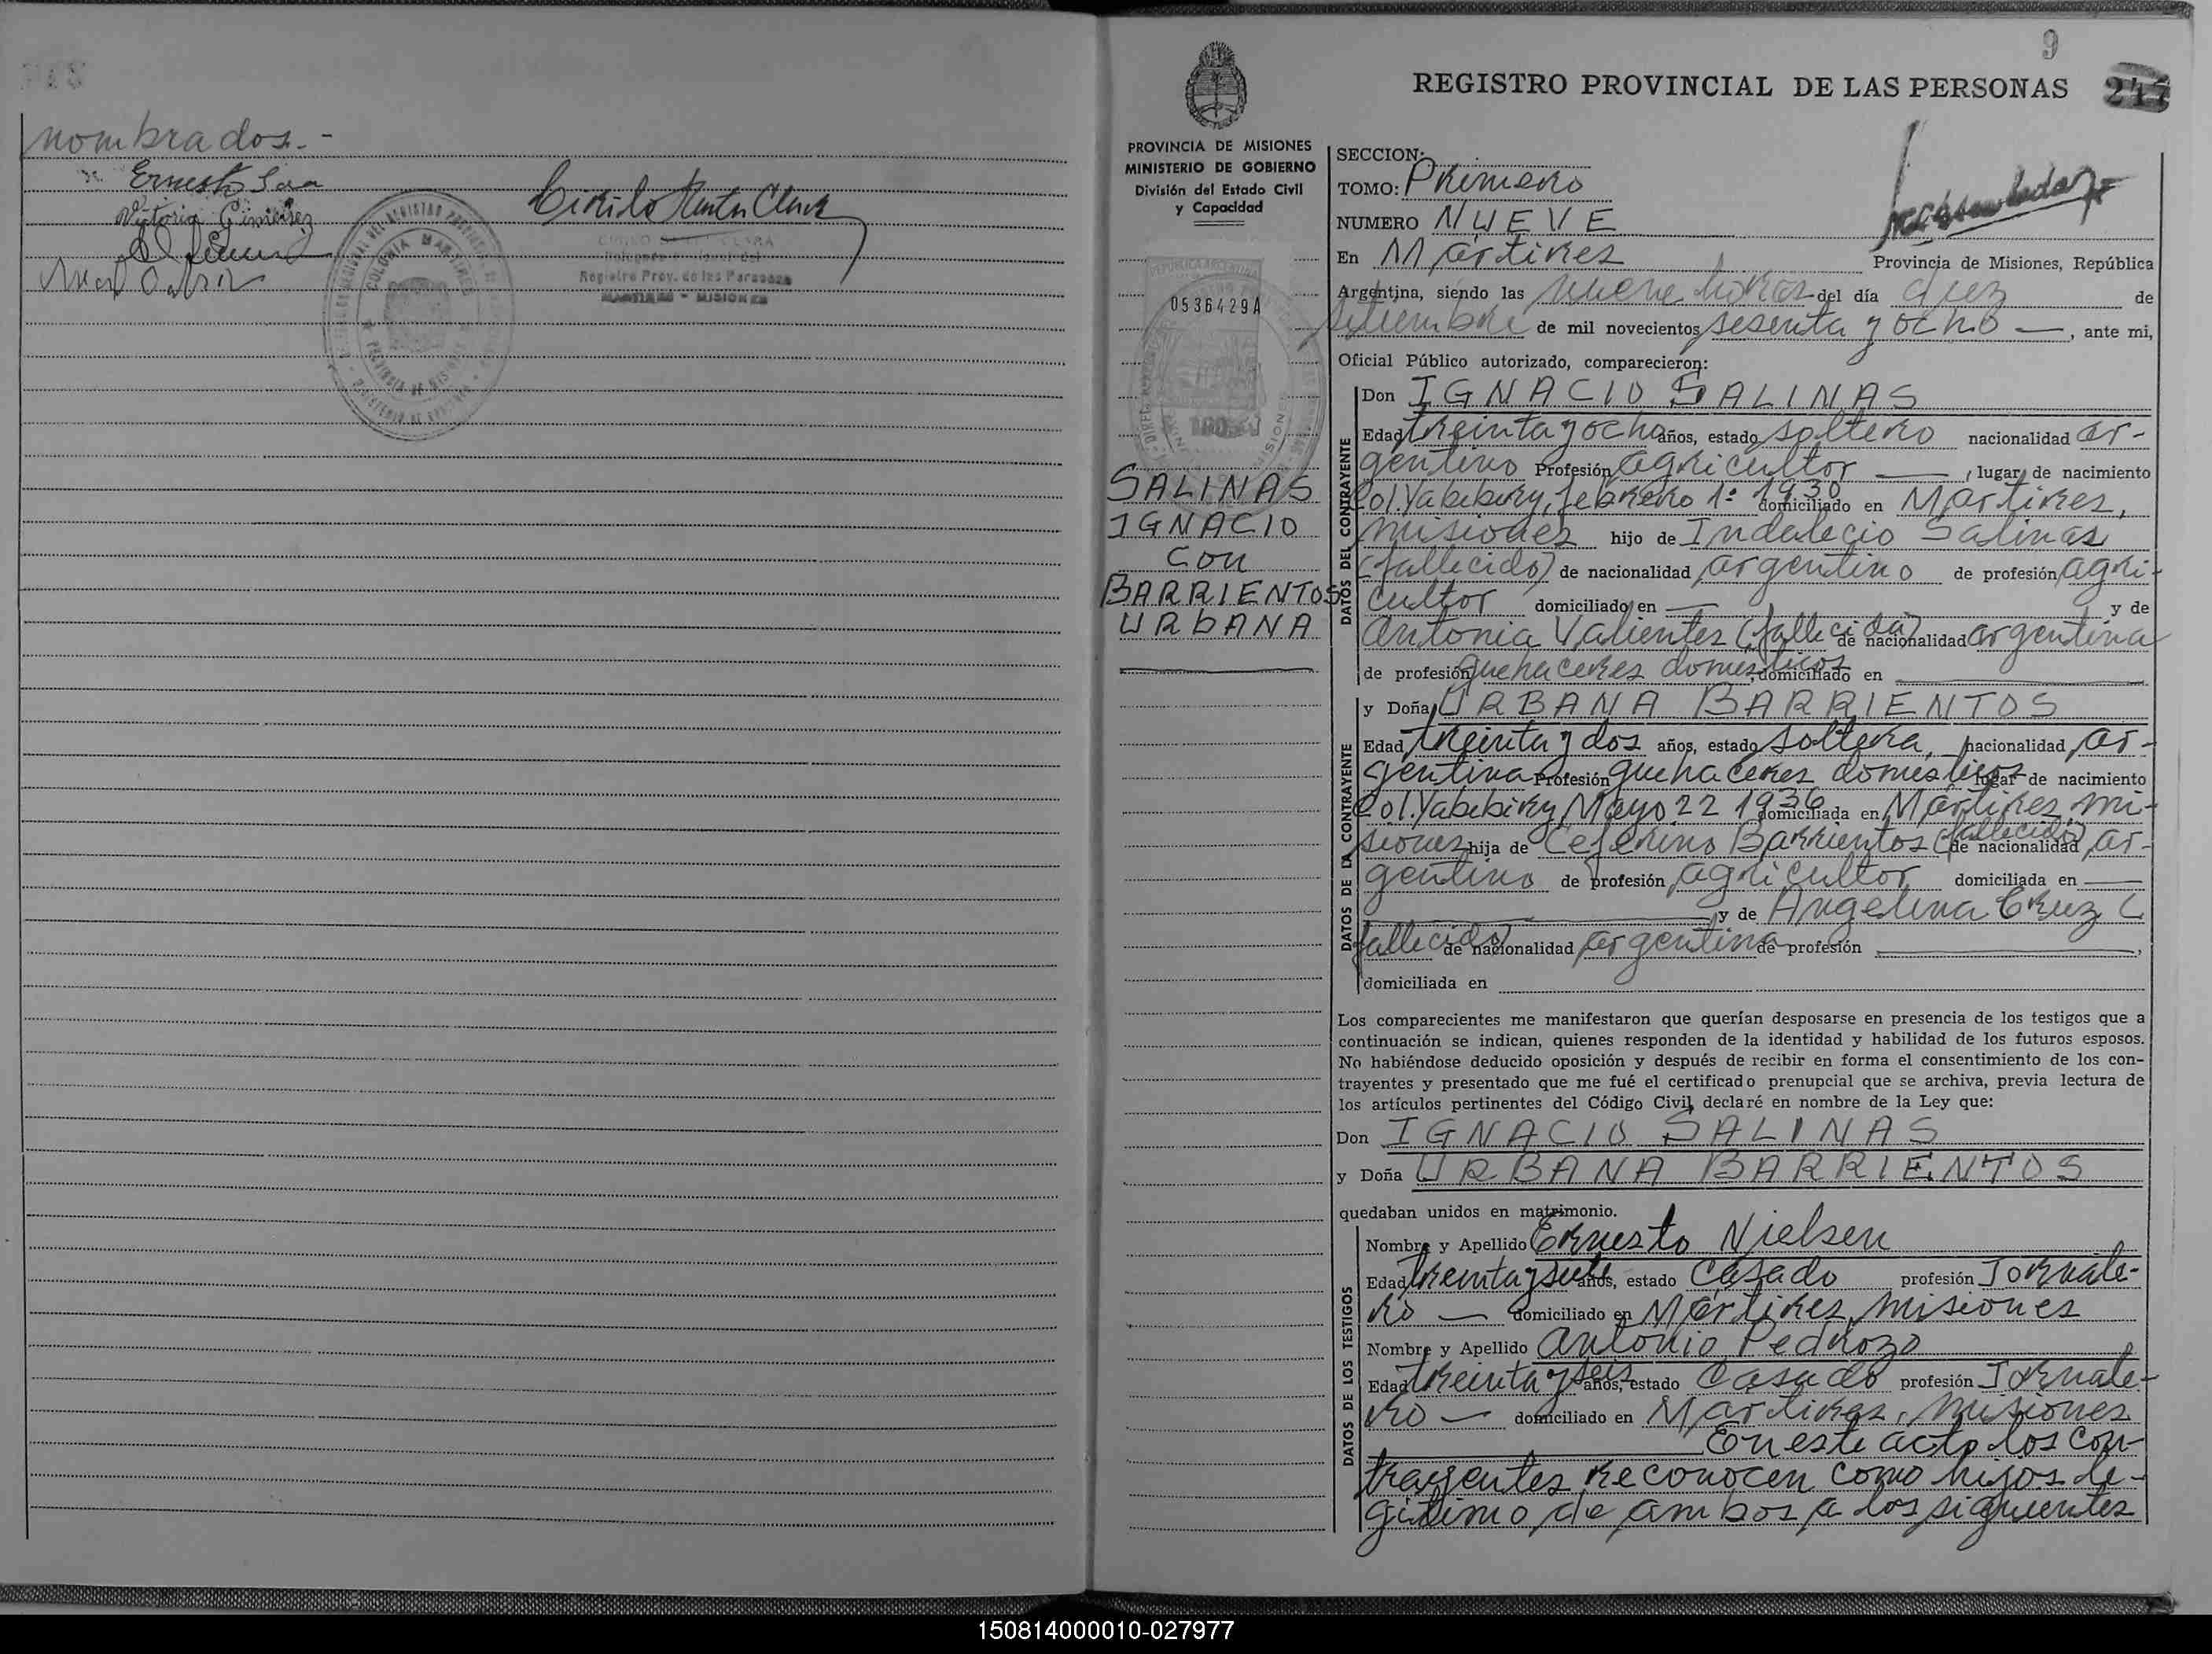 nombrados.-
Ernesto
Victoria Giménez
Cirilo Santa Clara
CIRILO SANTA CLARA
Registro Prov. de las Personas
MARTIRES - MISIONES
COLONIA MARTIRES
PROVINCIA DE MISIONES
9
REGISTRO PROVINCIAL DE LAS PERSONAS
247
PROVINCIA DE MISIONES
MINISTERIO DE GOBIERNO
División del Estado Civil
y Capacidad
REPUBLICA ARGENTINA
0536429A
SALINAS
IGNACIO
con
BARRIENTOS
URBANA
SECCION:
TOMO: Primero
NUMERO NUEVE
En Mártires Provincia de Misiones, República
Argentina, siendo las nueve horas del día diez de
setiembre de mil novecientos sesenta y ocho —, ante mi,
Oficial Público autorizado, comparecieron:
DATOS DEL CONTRAYENTE
Don IGNACIO SALINAS
Edad treinta y ocho años, estado soltero nacionalidad ar-
gentino Profesión agricultor —, lugar de nacimiento
Col. Yabebiry, febrero 1º 1930 domiciliado en Mártires,
Misiones hijo de Indalecio Salinas
(fallecido) de nacionalidad argentino de profesión agri-
cultor domiciliado en — y de
Antonia Valientes (fallecida) de nacionalidad argentina
de profesión quehaceres domésticos, domiciliado en —
DATOS DE LA CONTRAYENTE
y Doña URBANA BARRIENTOS
Edad treinta y dos años, estado soltera, nacionalidad ar-
gentina Profesión quehaceres domésticos lugar de nacimiento
Col. Yabebiry Mayo 22 1936 domiciliada en Mártires, Mi-
siones hija de Ceferino Barrientos (fallecido) de nacionalidad ar-
gentino de profesión agricultor domiciliada en —
— y de Angelina Cruz (
fallecida) de nacionalidad argentina de profesión —,
domiciliada en
Los comparecientes me manifestaron que querían desposarse en presencia de los testigos que a
continuación se indican, quienes responden de la identidad y habilidad de los futuros esposos.
No habiéndose deducido oposición y después de recibir en forma el consentimiento de los con-
trayentes y presentado que me fué el certificado prenupcial que se archiva, previa lectura de
los artículos pertinentes del Código Civil, declaré en nombre de la Ley que:
Don IGNACIO SALINAS
y Doña URBANA BARRIENTOS
quedaban unidos en matrimonio.
DATOS DE LOS TESTIGOS
Nombre y Apellido Ernesto Nielsen
Edad treinta y siete años, estado Casado profesión Jornale-
ro — domiciliado en Mártires, Misiones
Nombre y Apellido Antonio Pedrozo
Edad treinta y seis años, estado Casado profesión Jornale-
ro — domiciliado en Mártires, Misiones
En este acto los con-
trayentes reconocen como hijos le-
gítimo de ambos a los siguientes
150814000010-027977